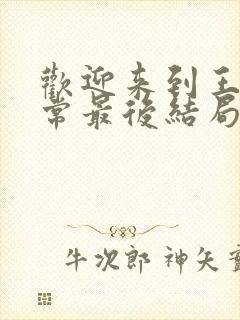 歡迎來到王
常最後結局
牛次郎 神矢